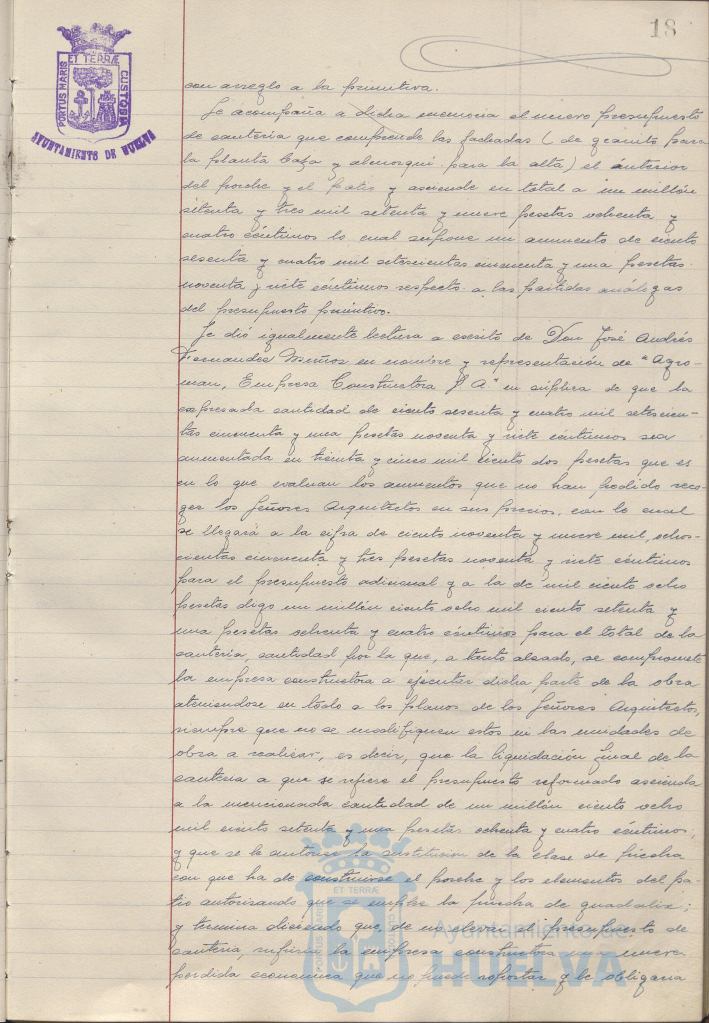 18
PORTUS MARIS ET TERRÆ CUSTODIA
AYUNTAMIENTO DE HUELVA
con arreglo a la primitiva.
Se acompaña a dicha memoria el nuevo presupuesto
de cantería que comprende las fachadas (de granito para
la planta baja y almorquí para la alta) el anterior
del porche y el patio y asciende en total a un millón
setenta y tres mil setenta y nueve pesetas ochenta y
cuatro céntimos lo cual supone un aumento de ciento
sesenta y cuatro mil setescientas cincuenta y una pesetas
noventa y siete céntimos respecto a las partidas análogas
del presupuesto primitivo.
Se dió igualmente lectura a escrito de Don José Andrés
Fernandez Muñoz en nombre y representación de "Agro-
man, Empresa Constructora S.A" en súplica de que la
expresada cantidad de ciento sesenta y cuatro mil setescien-
tas cincuenta y una pesetas noventa y siete céntimos sea
aumentada en treinta y cinco mil ciento dos pesetas que es
en lo que evaluan los aumentos que no han podido reco-
ger los Señores Arquitectos en sus precios, con lo cual
se llegará a la cifra de ciento noventa y nueve mil, ochos-
cientas cincuenta y tres pesetas noventa y siete céntimos
para el presupuesto adicional y a la de mil ciento ocho
pesetas digo un millón ciento ocho mil ciento setenta y
una pesetas ochenta y cuatro céntimos para el total de la
cantería, cantidad por la que, a tanto alzado, se compromete
la empresa constructora a ejecutar dicha parte de la obra
ateniendose en todo a los planos de los Señores Arquitectos,
siempre que no se modifiquen estos ni las unidades de
obra a realizar, es decir, que la liquidación final de la
cantería a que se refiere el presupuesto reformado ascienda
a la mencionada cantidad de un millón ciento ocho
mil ciento setenta y una pesetas ochenta y cuatro céntimos;
y que se le autorice la sustitución de la clase de piedra
con que ha de construirse el porche y los elementos del pa-
tio autorizando que se emplee la piedra de
y termina diciendo que, de no elevar el presupuesto de
cantería, sufriría la empresa constructora una nueva
perdida economica que no puede soportar y le obligaria
PORTUS MARIS ET TERRÆ CUSTODIA
Ayuntamiento de
HUELVA